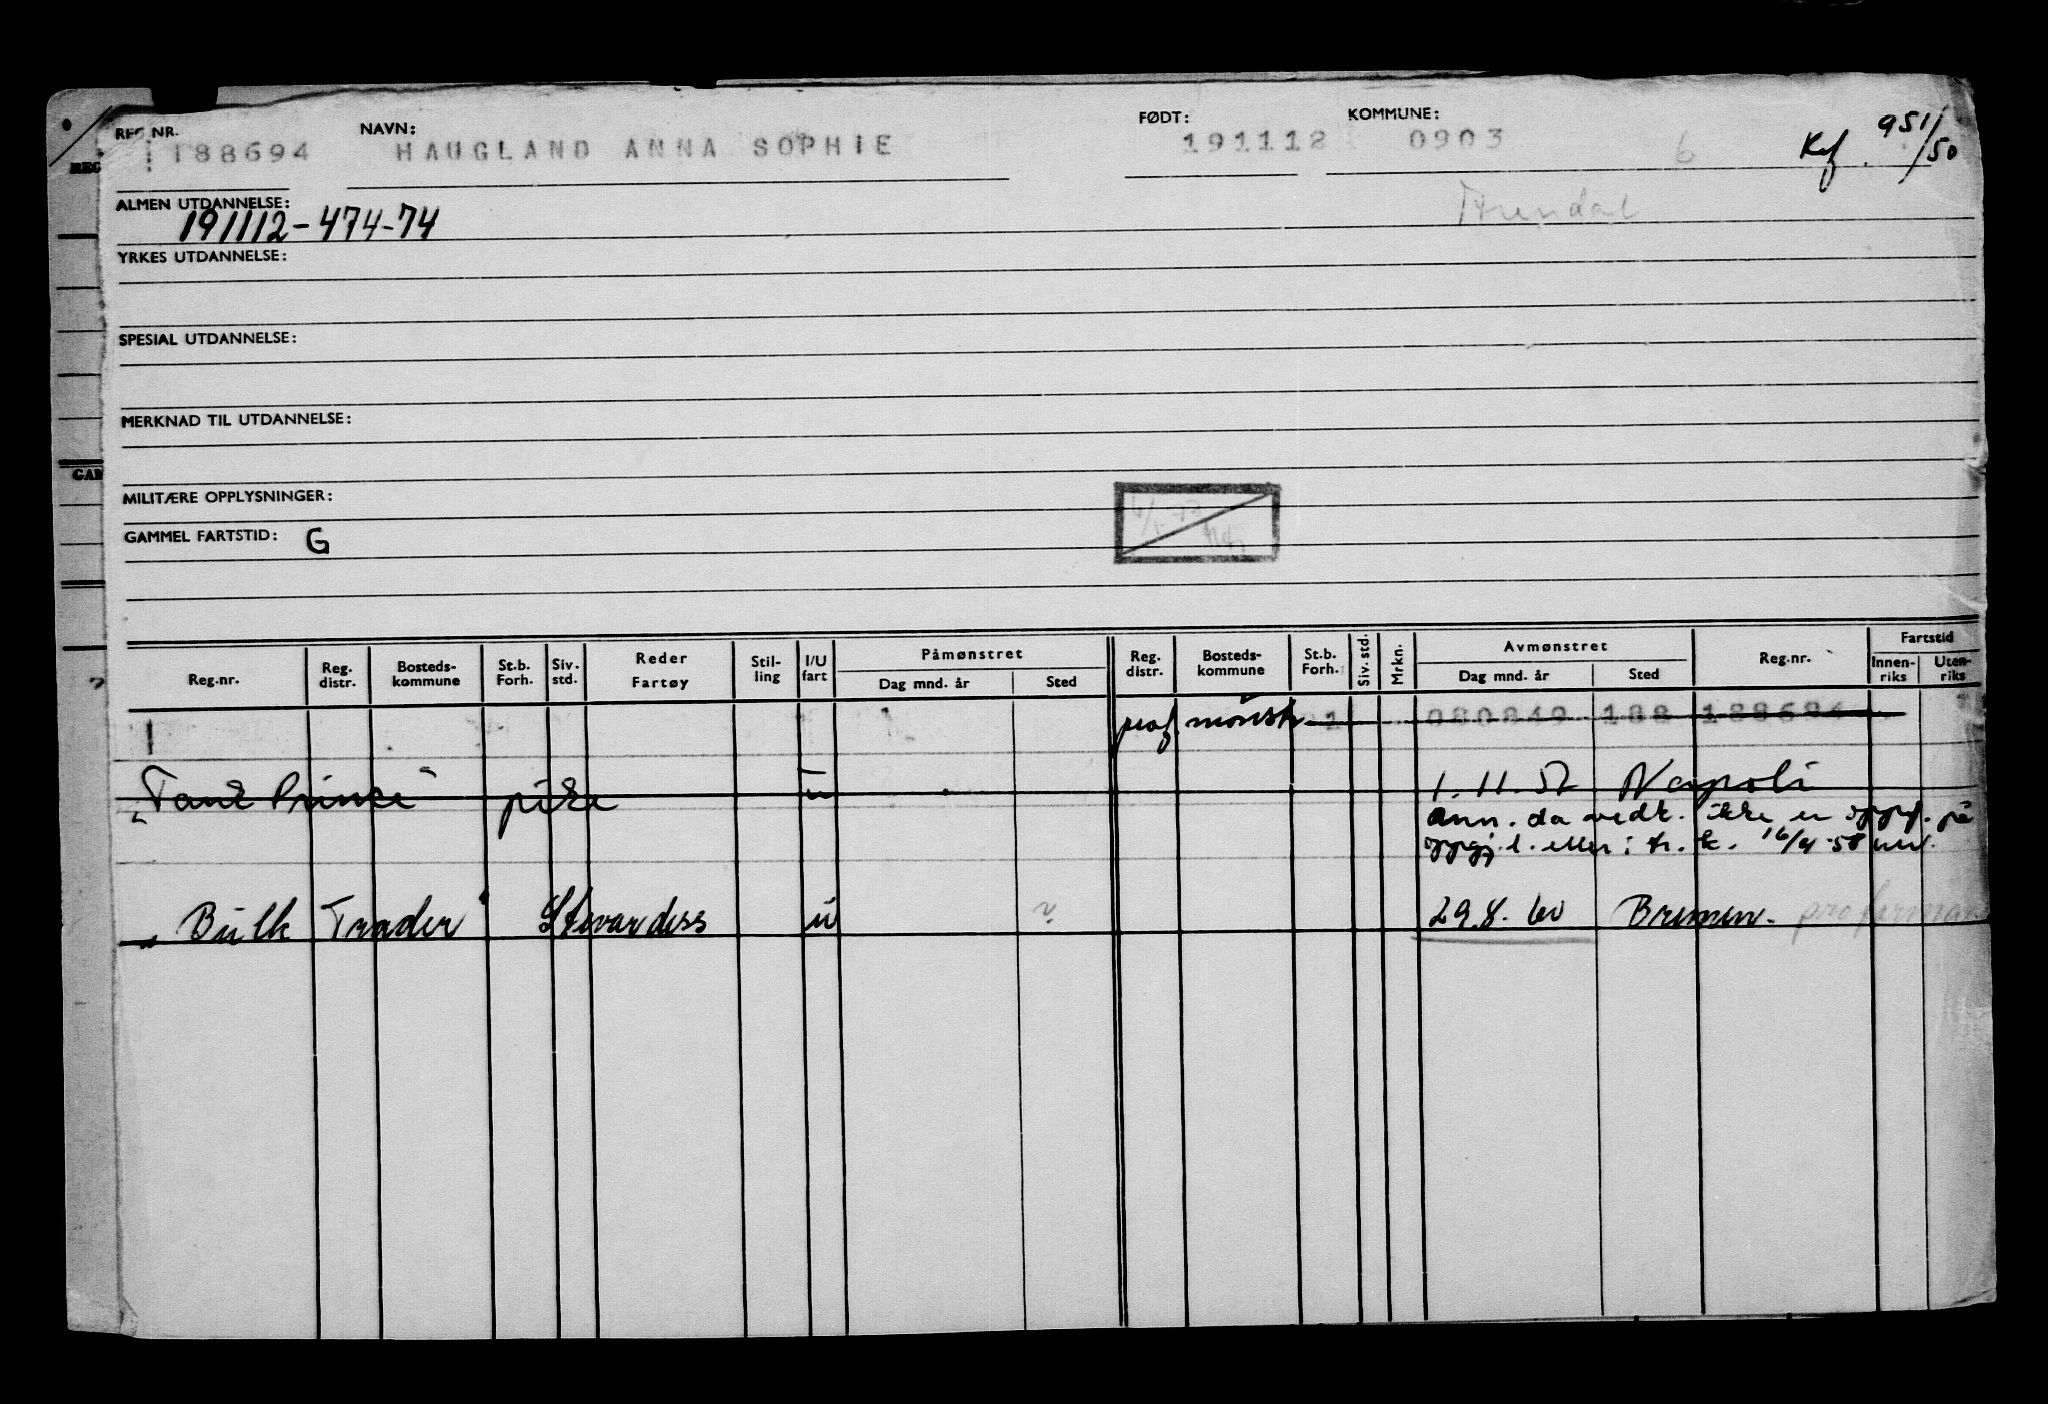 REG. NR. NAVN: FØDT: KOMMUNE:
188694 HAUGLAND ANNA SOPHIE 191112 0903 6 951/50
REG
ALMEN UTDANNELSE: Arendal
191112-474-74
YRKES UTDANNELSE:
SPESIAL UTDANNELSE:
MERKNAD TIL UTDANNELSE:
GAM
MILITÆRE OPPLYSNINGER:
GAMMEL FARTSTID: G
Reg.nr. Reg. distr. Bosteds-kommune St.b. Forh. Siv. std. Reder Fartøy Stil-ling I/U fart Påmønstret Dag mnd. år Sted Reg. distr. Bosteds-kommune St.b. Forh. Siv. std. Mrkn. Avmønstret Dag mnd. år Sted Reg.nr. Fartstid Innen-riks Uten-riks
1 080849 188 188684
"Tank Prince" pike u 1.11.57 Napoli
ann. da vedk. ikke er oppf. på
eller i 16/4-58
"Bulk Trader" Stewardess u ? 29.8.60 Bremen.